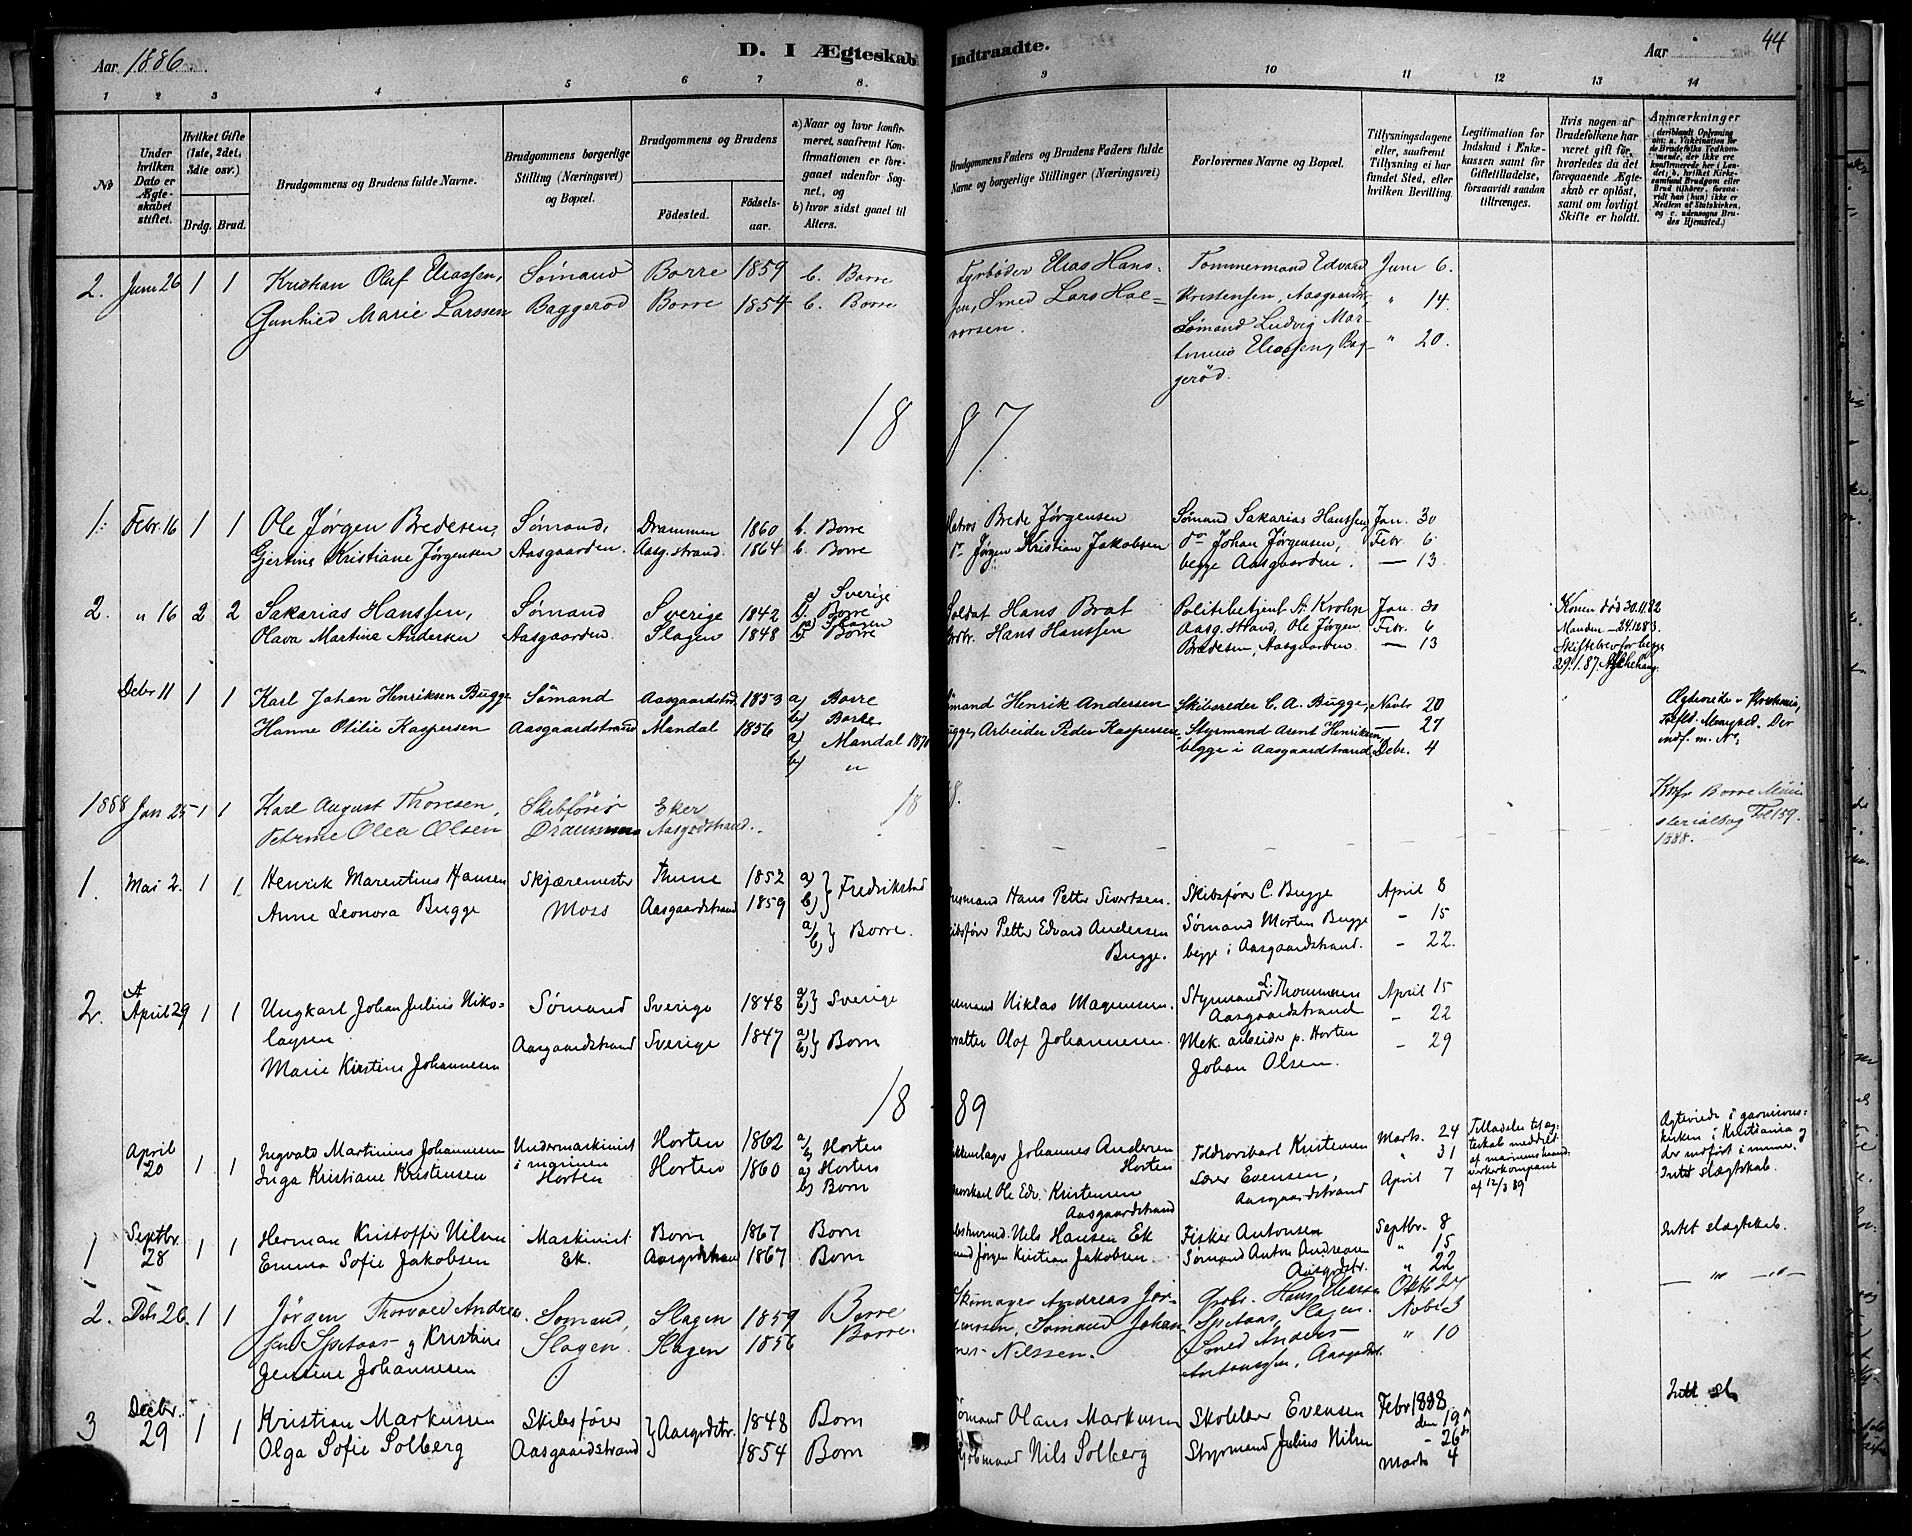 Aar 1886.
D. I Ægteskab Indtraadte.
Aar
44
1 2 3 4 5 6 7 8. 9 10 11 12 13 14
No
Under hvilken Dato er Ægteskabet stiftet.
Hvilket Gifte (1ste, 2det, 3die osv.)
Brdg. Brud.
Brudgommens og Brudens fulde Navne.
Brudgommens borgerlige Stilling (Næringsvei) og Bopæl.
Brudgommens og Brudens
Fødested.
Fødselsaar.
a) Naar og hvor konfirmeret, saafremt Konfirmationen er foregaaet udenfor Sognet, og
b) hvor sidst gaaet til Alters.
Brudgommens Faders og Brudens Faders fulde Navne og borgerlige Stillinger (Næringsvei)
Forlovernes Navne og Bopæl.
Tillysningsdagene eller, saafremt Tillysning ei har fundet Sted, efter hvilken Bevilling.
Legitimation for Indskud i Enkekassen samt for Giftetilladelse, forsaavidt saadan tiltrænges.
Hvis nogen af Brudefolkene har været gift før, hvorledes da det foregaaende Ægteskab er opløst, samt om lovligt Skifte er holdt.
Anmærkninger
2. Juni 26 1 1 Kristian Olaf Eliassen, Sømand Borre 1859 b. Borre Fyrbøder Elias Hans- Tømmermand Edvard Juni 6.
Gunhild Marie Larssen Baggerød Borre 1854 b. Borre sen, Smed Lars Hal- Kristensen, Aasgaardst. " 14.
vorsen. Sømand Ludvig Mar-
tinius Eliassen, Bag- " 20.
gerød.
1887
1. Febr. 16 1 1 Ole Jørgen Bredesen, Sømand, Drammen 1860 b. Borre Matros Brede Jørgensen Sømand Sakarias Hanssen, Jan. 30
Gjertine Kristiane Jørgensen Aasgaarden. Aasg.strand. 1864 b. Borre do Jørgen Kristian Jakobsen do Johan Jørgensen, Febr. 6
begge Aasgaarden. — 13.
2. " 16 2 2 Sakarias Hanssen, Sømand Sverige 1842 a) Sverige b) Borre Soldat Hans Brat Politibetjent A. Krohn Jan. 30 Konen død 30.11.82
Olava Martina Andersen Aasgaarden. Slagen 1848 a) Slagen b) Borre Hans Hanssen Aasg.strand, Ole Jørgen Febr. 6 Manden — 24.12.83.
Bredesen, Aasgaarden — 13 Skiftebrev for begge
29.1.87
Debr 11 1 1 Karl Johan Henriksen Bugge Sømand Aasgaardstrd. 1853 a) Borre Sømand Henrik Andersen Skibsreder C. A. Bugge, Novbr 20
Hanne Otilie Kaspersen Aasgaardstrand Mandal 1856 b) Borre Bugge, Arbeider Peder Kaspersen Styrmand Arent Henriksen, — 27
a) Mandal begge i Aasgaardstrand. Debr. 4
b) "
1888 Jan 25 1 1 Karl August Thoresen, Skibsfører Eker 18 Borre Mini-
Petrine Olea Olsen Drammen Aasgrdstrand. sterialbog Fol 159.
1888.
1. Mai 2. 1 1 Henrik Marentius Hansen Skjæremester Thune 1852 a) b) Fredrikstad Husmand Hans Petter Sivertsen. Skibsfør C. Bugge April 8
Anne Leonora Bugge Moss Aasgaardstrand 1859 a) b) Borre. Skibsfører Petter Edvard Andersen Sømand Morten Bugge - 15
Bugge. begge i Aasgaardstrand. - 22.
2. April 29 1 1 Ungkarl Johan Julius Niko- Sømand Sverige 1848 a) b) Sverige Niklas Magnussen. Styrmand L. Thommesen April 15
laysen Aasgaardstrand - 22
Marie Kirstine Johannesen Aasgaardstrand Sverige 1847 a) b) Borre Olof Johannesen. Mek. arbeider p. Horten - 29
Johan Olsen.
1889
April 20 1 1 Ingvald Martinius Johannesen Undermaskinist Horten 1862 a) b) Horten Johannes Andersen Horten Toldrorskarl Kristensen Marts. 24 Tilladelse til æg-
Inga Kristiane Kristensen i marinen Horten Horten 1860 a) Horten b) Borre Ole Edv. Kristensen Aasgaardstrand Lærer Evensen, Aasgaardstrand " 31 April 7 teskab meddelt
af marinens haand-
verkerkompani
af 12/3 89
Ægteviede i garnisons-
kirken i Kristiania og
der indført i numer.
Intet slægtskab.
1 Septbr. 28 1 1 Herman Kristoffer Nilsen Maskinist Borre 1867 Borre Nils Hansen Ek Fisker Antonsen Septbr. 8 Intet slægtskab.
Emma Sofie Jakobsen Ek. Aasgrdstran 1867 Borre Jørgen Kristian Jakobsen. Sømand Anton Andreasen Aasgrdstr. " 15 " 22
2. Debr 26. 1 1 Jørgen Thorvald Andrea- Sømand, Slagen 1859 Borre Skomager Andreas Jør- Grbr. Hans Eliassen Oktb 27 — " — " —
sen Spetaas og Kristine Slagen. Slagen 1856 Borre. gensen, Sømand Johan- Spetaas, Slagen. Novbr 3
Jensine Johannesen nes Nilssen. Smed Anders " 10
Antonssen, Aasgrdst.
3 Decbr. 29 1 1 Kristian Markussen Skibsfører Aasgrdstr. 1848 Borre Sømand Olaus Markussen Skolelær Evensen Febr 1888 den 19de Intet sl.
Olga Sofie Solberg Aasgaardstrand 1854 Borre Nils Solberg Styrmand Julius Nilsen - 26de
Marts 4